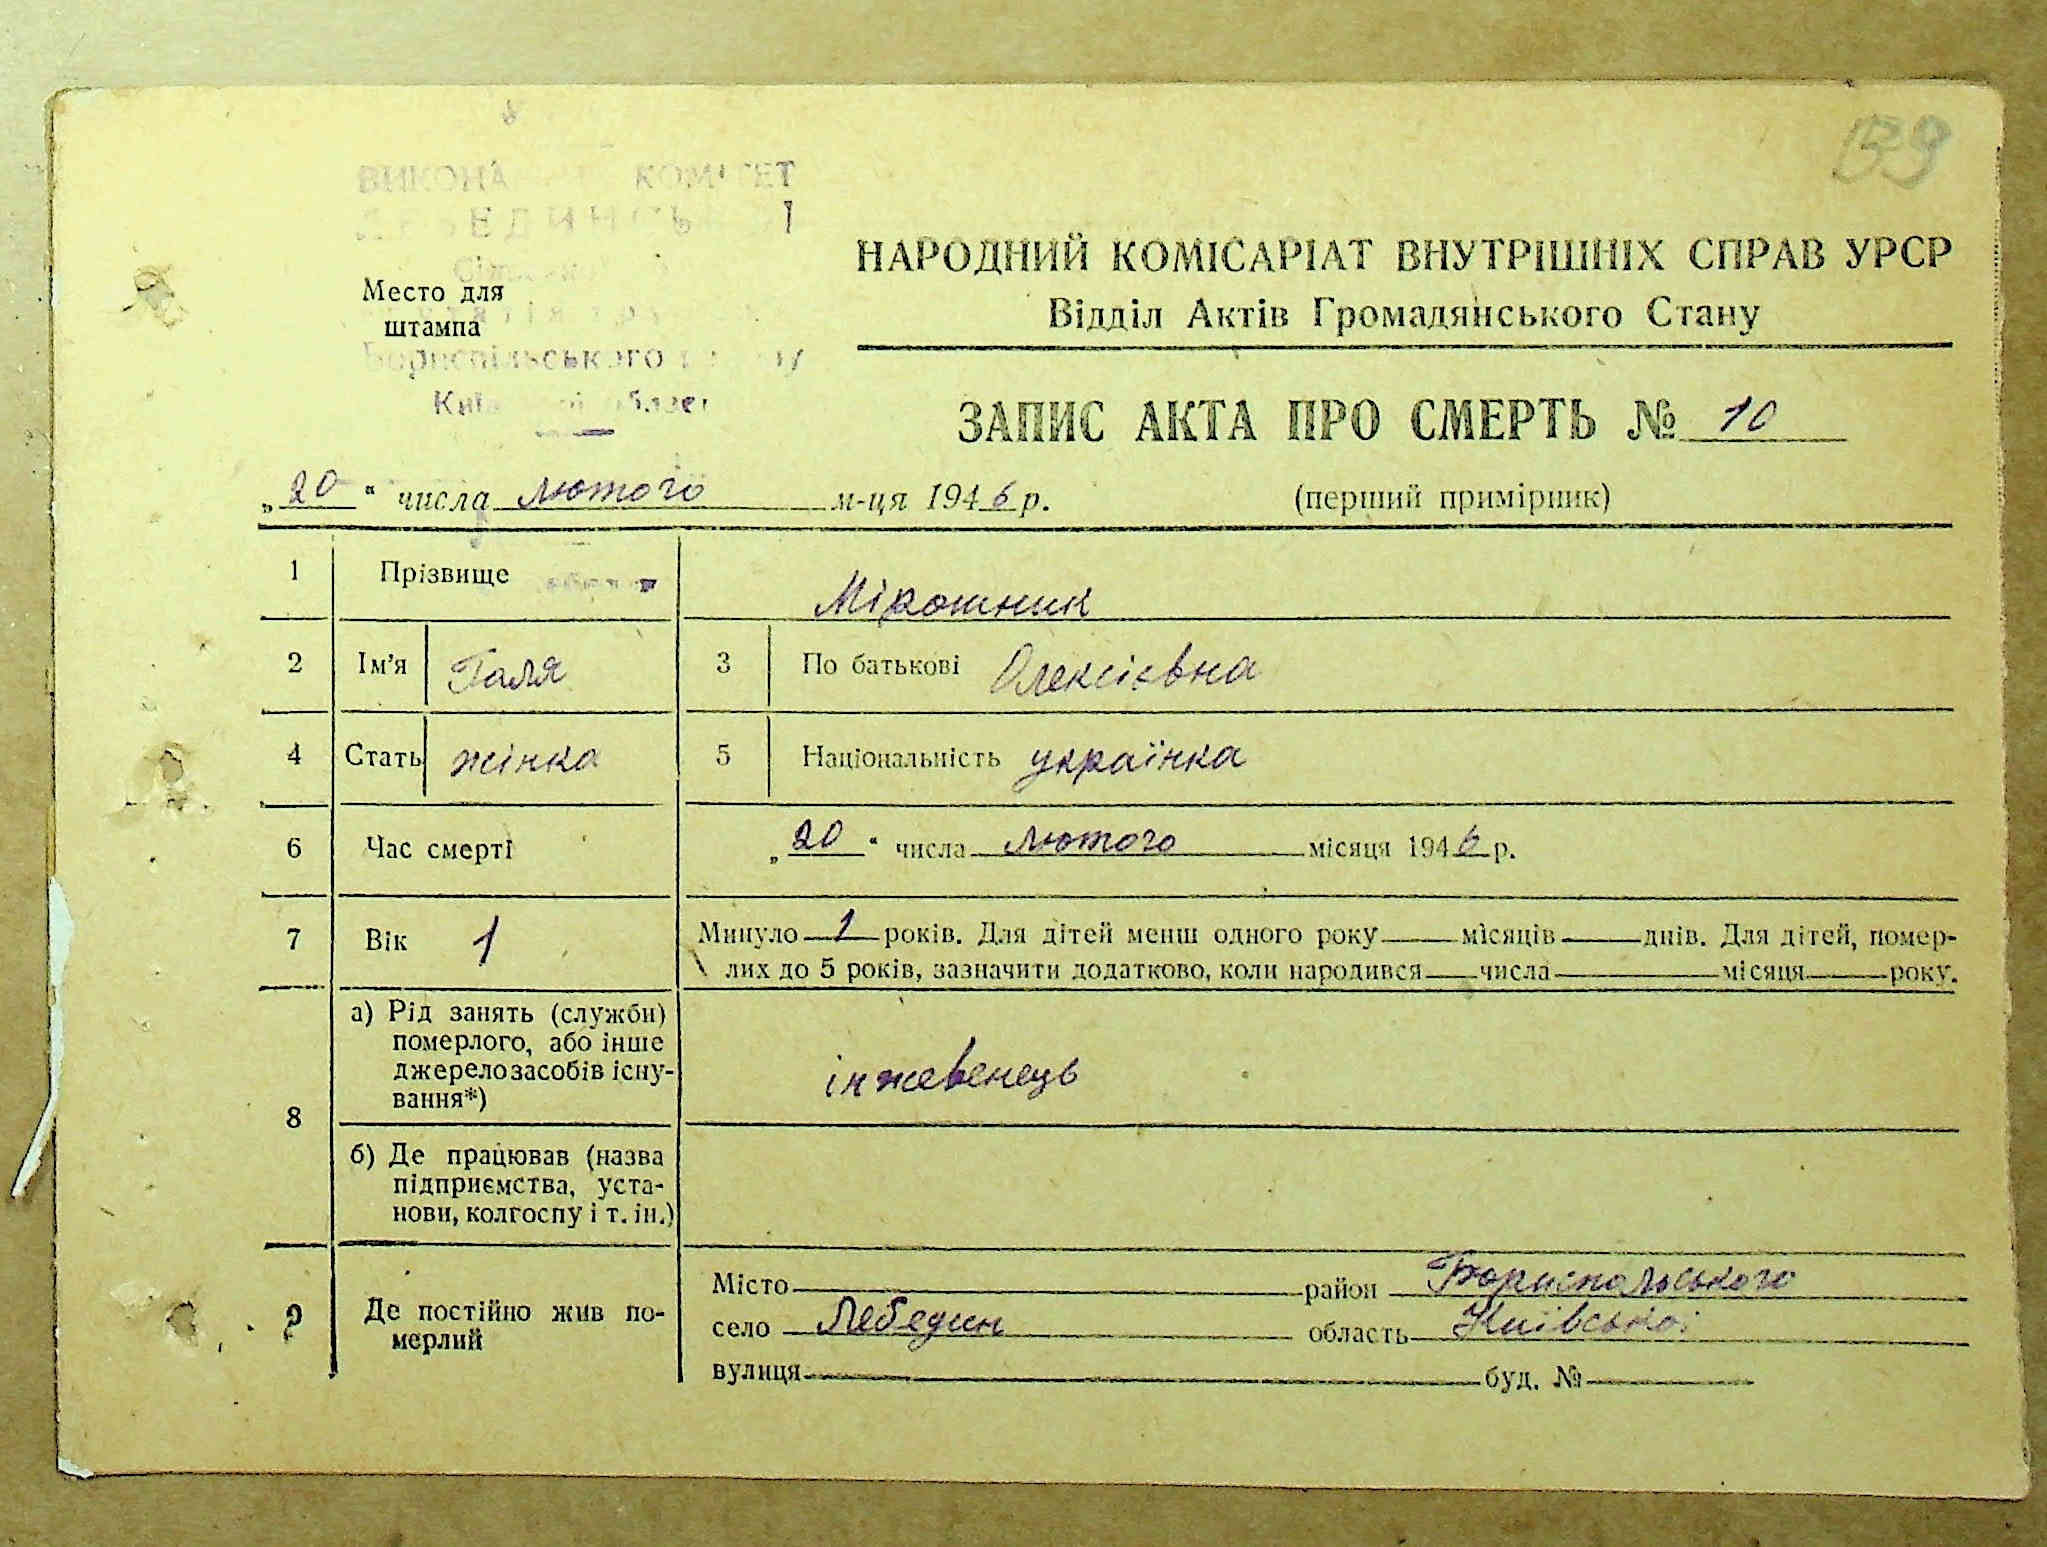 139
КОМІТЕТ
Бориспільського
Место для
штампа
НАРОДНИЙ КОМІСАРІАТ ВНУТРІШНІХ СПРАВ УРСР
Відділ Актів Громадянського Стану
ЗАПИС АКТА ПРО СМЕРТЬ № 10
„20“ числа лютого м-ця 1946 р.
(перший примірник)
1 Прізвище Мірошник
2 Ім'я Галя 3 По батькові Олексієвна
4 Стать жінка 5 Національність українка
6 Час смерті „20“ числа лютого місяця 1946 р.
7 Вік 1 Минуло 1 років. Для дітей менш одного року місяців днів. Для дітей, помер-
лих до 5 років, зазначити додатково, коли народився числа місяця року.
8 а) Рід занять (служби)
померлого, або інше
джерело засобів існу-
вання*)
інжевенець
б) Де працював (назва
підприємства, уста-
нови, колгоспу і т. ін.)
9 Де постійно жив по-
мерлий
Місто район Бориспольського
село Лебедин область Київської
вулиця буд. №